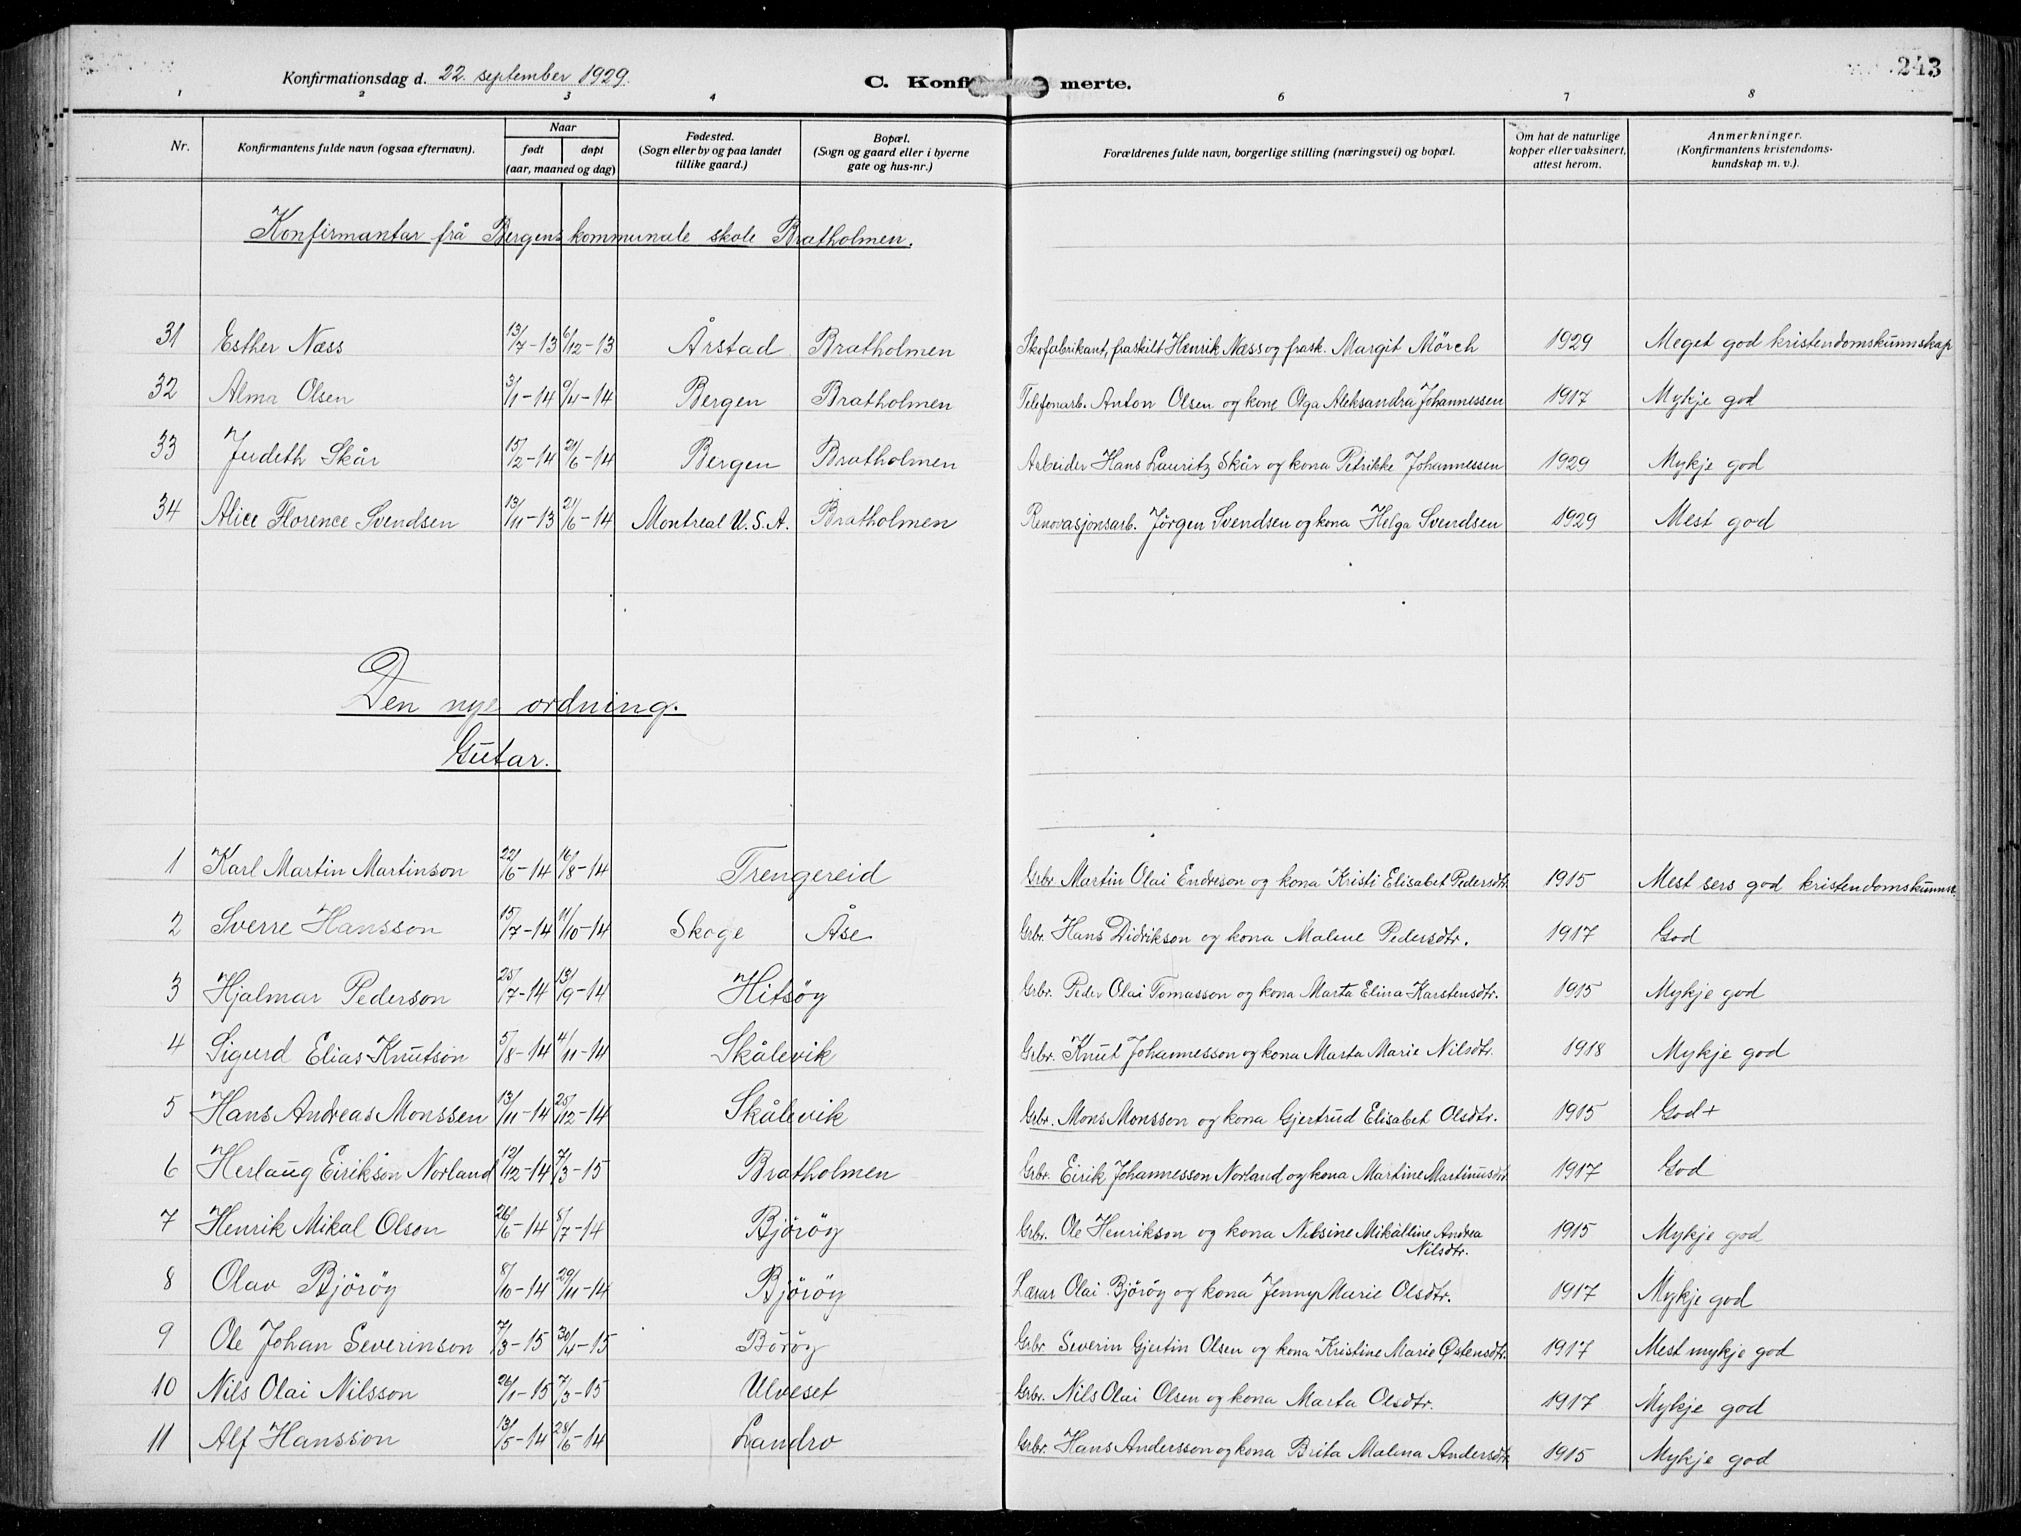 243
Konfirmationsdag d. 22. september 1929. C. Konfi merte.
1 2 3 4 5 6 7 8
Nr. Konfirmantens fulde navn (ogsaa efternavn). Naar født døpt (aar, maaned og dag) Fødested. (Sogn eller by og paa landet tillike gaard.) Bopæl. (Sogn og gaard eller i byerne gate og hus-nr.) Forældrenes fulde navn, borgerlige stilling (næringsvei) og bopæl. Om hat de naturlige kopper eller vaksinert, attest herom. Anmerkninger. (Konfirmantens kristendoms- kundskap m. v.).
Konfirmantar frå Bergens kommunale skole Bratholmen.
31 Esther Næss 13/7-13 6/12-13 Årstad Bratholmen Skofabrikant, fraskilt Henrik Næss og frask. Margit Mörch 1929 Meget god kristendomskunnskap
32 Alma Olsen 3/1-14 9/11-14 Bergen Bratholmen Telefonarb. Anton Olsen og kone Olga Aleksandra Johannessen 1917 Mykje god
33 Judeth Skår 15/2-14 21/6-14 Bergen Bratholmen Arbeider Hans Lauritz Skår og kona Petrikke Johannessen 1929 Mykje god
34 Alice Florence Svendsen 13/11-13 21/6-14 Montreal U.S.A. Bratholmen Renovasjonsarb. Jørgen Svendsen og kona Helga Svendsen 1929 Mest god
Den nye ordning.
Gutar.
1 Karl Martin Martinson 22/6-14 16/8-14 Trengereid Grbr. Martin Olai Endreson og kona Kristi Elisabet Pedersdtr. 1915 Mest sers god kristendomskunnsk.
2 Sverre Hansson 15/7-14 11/10-14 Skoge Åse Grbr. Hans Didrikson og kona Malene Pedersdtr. 1917 God
3 Hjalmar Pederson 25/7-14 13/9-14 Hitsöy Grbr. Peder Olai Tomasson og kona Marta Elina Karstensdtr. 1915 Mykje god
4 Sigurd Elias Knutson 5/8-14 4/11-14 Skålevik Grbr. Knut Johannesson og kona Marta Marie Nilsdtr. 1918 Mykje god
5 Hans Andreas Monssen 13/11-14 25/12-14 Skålevik Grbr. Mons Monsson og kona Gjertrud Elisabet Olsdtr. 1915 God+
6 Herlaug Eirikson Norland 12/12-14 7/3-15 Bratholmen Grbr. Eirik Johannesson Norland og kona Martine Martinusdtr. 1917 God
7 Henrik Mikal Olson 26/6-14 8/7-14 Björöy Grbr. Ole Henrikson og kona Nilsine Mikaline Andrea Nilsdtr. 1915 Mykje god
8 Olav Björöy 8/10-14 29/11-14 Björöy Lærar Olai Björöy og kona Jenny Marie Olsdtr. 1917 Mykje god
9 Ole Johan Severinson 7/3-15 30/4-15 Böröy Grbr Severin Gjertin Olsen og kona Kristine Marie Østensdtr. 1917 Mest mykje god
10 Nils Olai Nilsson 26/1-15 7/3-15 Ulveset Grbr. Nils Olai Olsen og kona Marta Olsdtr. 1917 Mykje god
11 Alf Hansson 13/5-14 28/6-14 Landro Grbr. Hans Andersson og kona Brita Malena Andersdtr. 1915 Mykje god